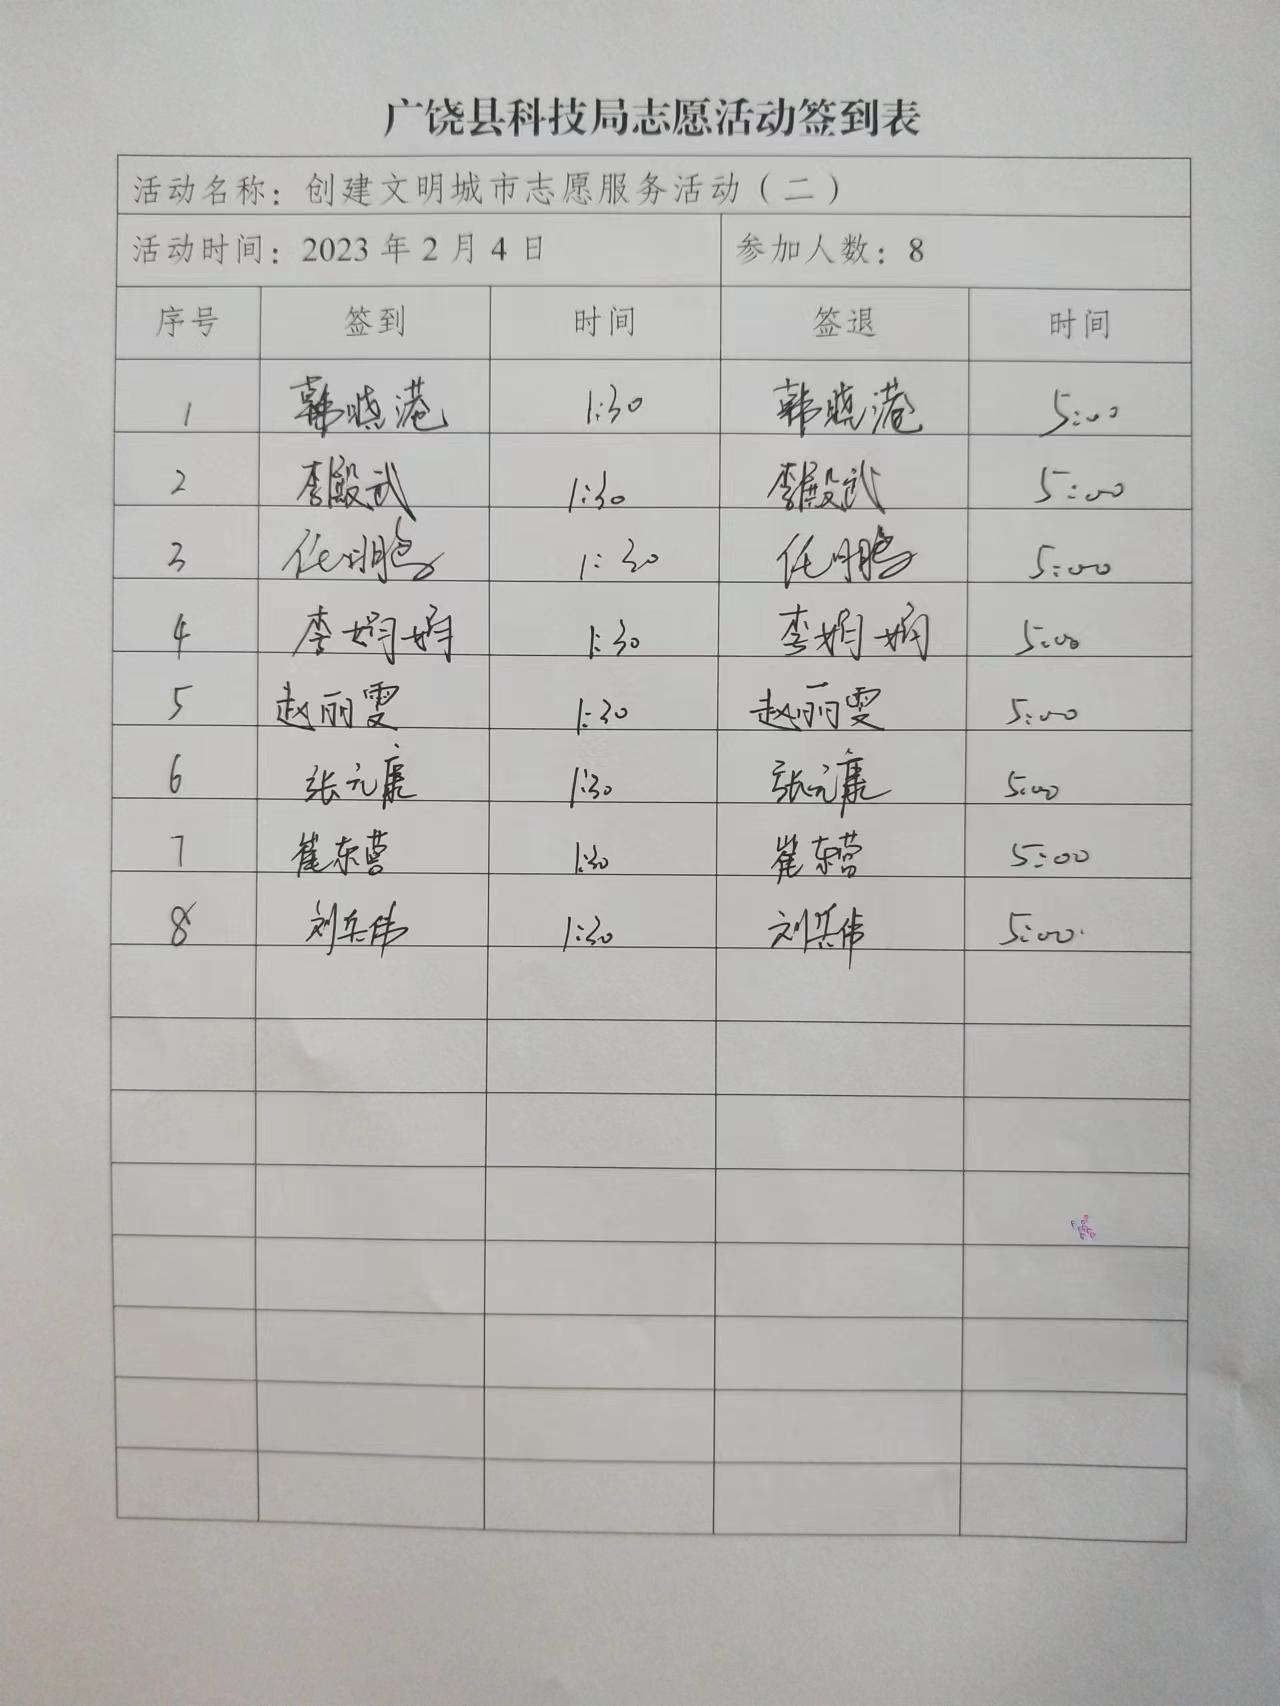 广饶县科技局志愿活动签到表
活动名称：创建文明城市志愿服务活动（二）
活动时间：2023年2月4日 参加人数：8
序号 签到 时间 签退 时间
1 韩晓港 1:30 韩晓港 5:00
2 李殿武 1:30 李殿武 5:00
3 任明鹏 1:30 任明鹏 5:00
4 李娟娟 1:30 李娟娟 5:00
5 赵丽雯 1:30 赵丽雯 5:00
6 张元康 1:30 张元康 5:00
7 崔东营 1:30 崔东营 5:00
8 刘兵伟 1:30 刘兵伟 5:00